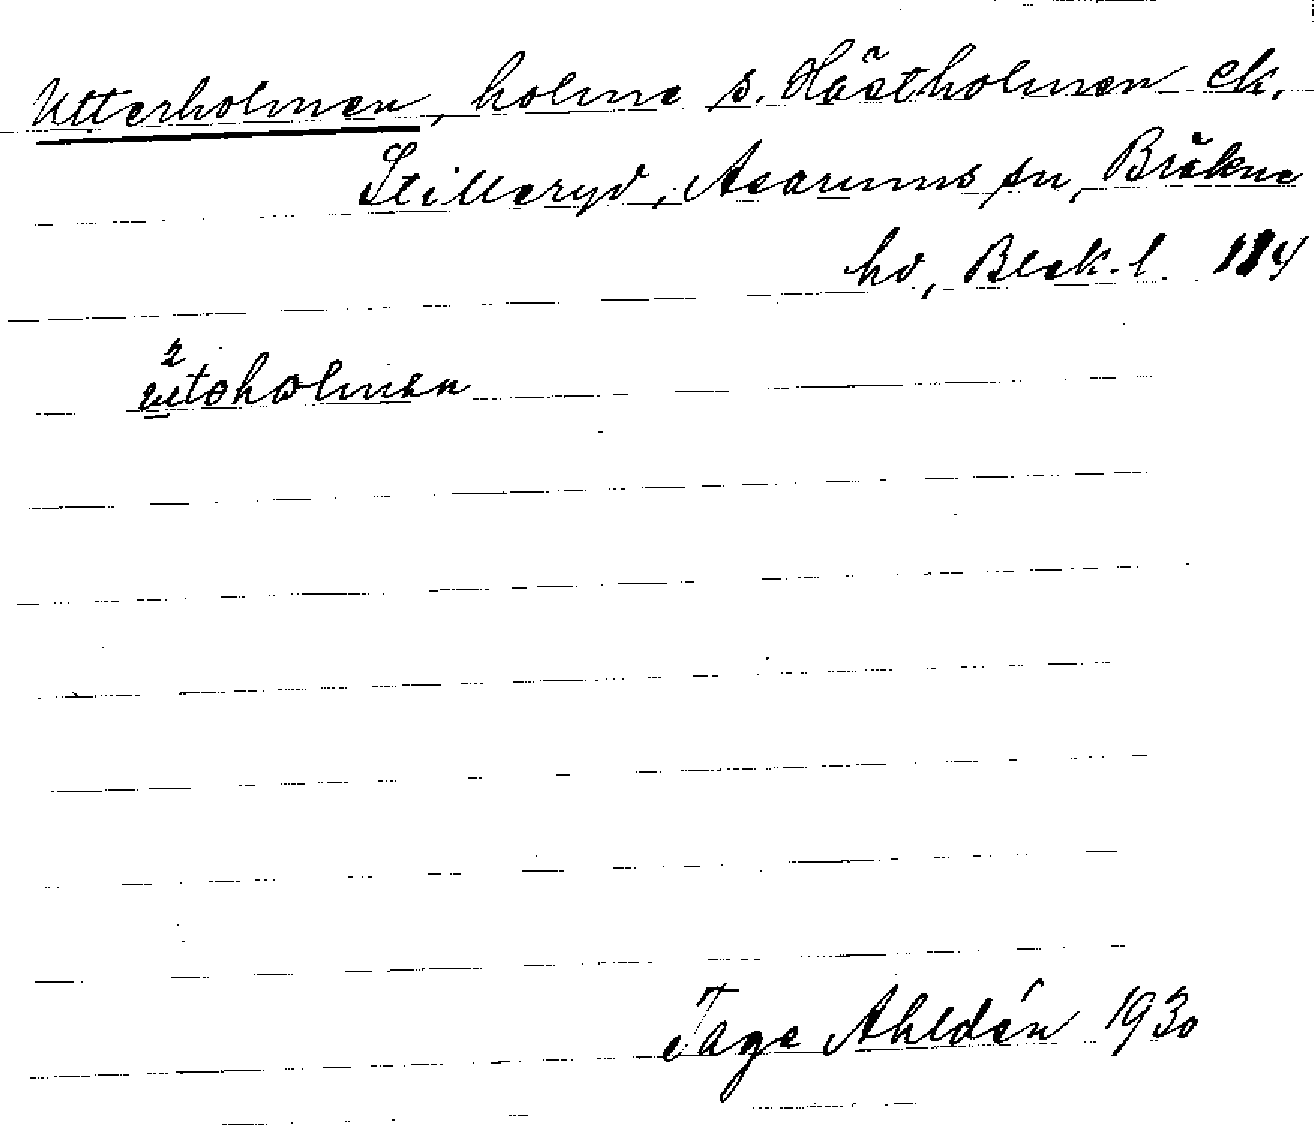 Utterholmen, holme s. Hästholmen ek.
Stilleryd, Asarums sn, Bräkne
hd, Blek. l. 184
Tage Ahldén 1930